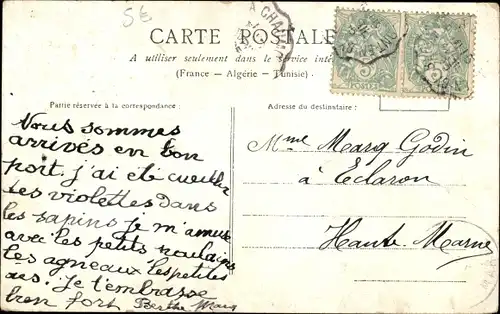 5
CARTE POSTALE
A utiliser seulement dans le service
(France - Algérie - Tunisie)
Partie réservée à la correspondance:
Adresse du destinataire:
Nous sommes
arrivés en bon
port. j'ai été cueillir
les violettes dans
les sapins je m'amuse
avec les petits poulains
les agneaux les petites
oies. Je t'embrasse
bien fort Berthe Marq
Mme Marq Godin
à Eclaron
Haute-Marne